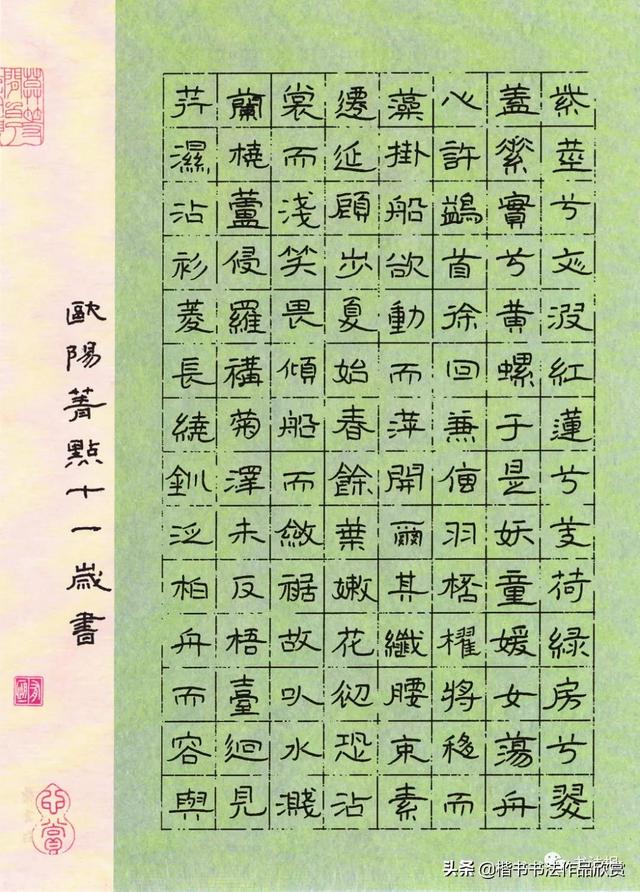 紫莖兮文波紅蓮兮芰荷綠房兮翠
蓋素實兮黃螺于是妖童媛女蕩舟
心許鷁首徐回兼傳羽桮櫂將移而
藻掛船欲動而萍開爾其纖腰束素
遷延顧步夏始春餘葉嫩花初恐沾
裳而淺笑畏傾船而斂裾故以水濺
蘭橈蘆侵羅褠菊澤未反梧臺迴見
荇濕沾衫菱長繞釧泛柏舟而容與
歐陽菁點十一歲書
头条 @楷书书法作品欣赏